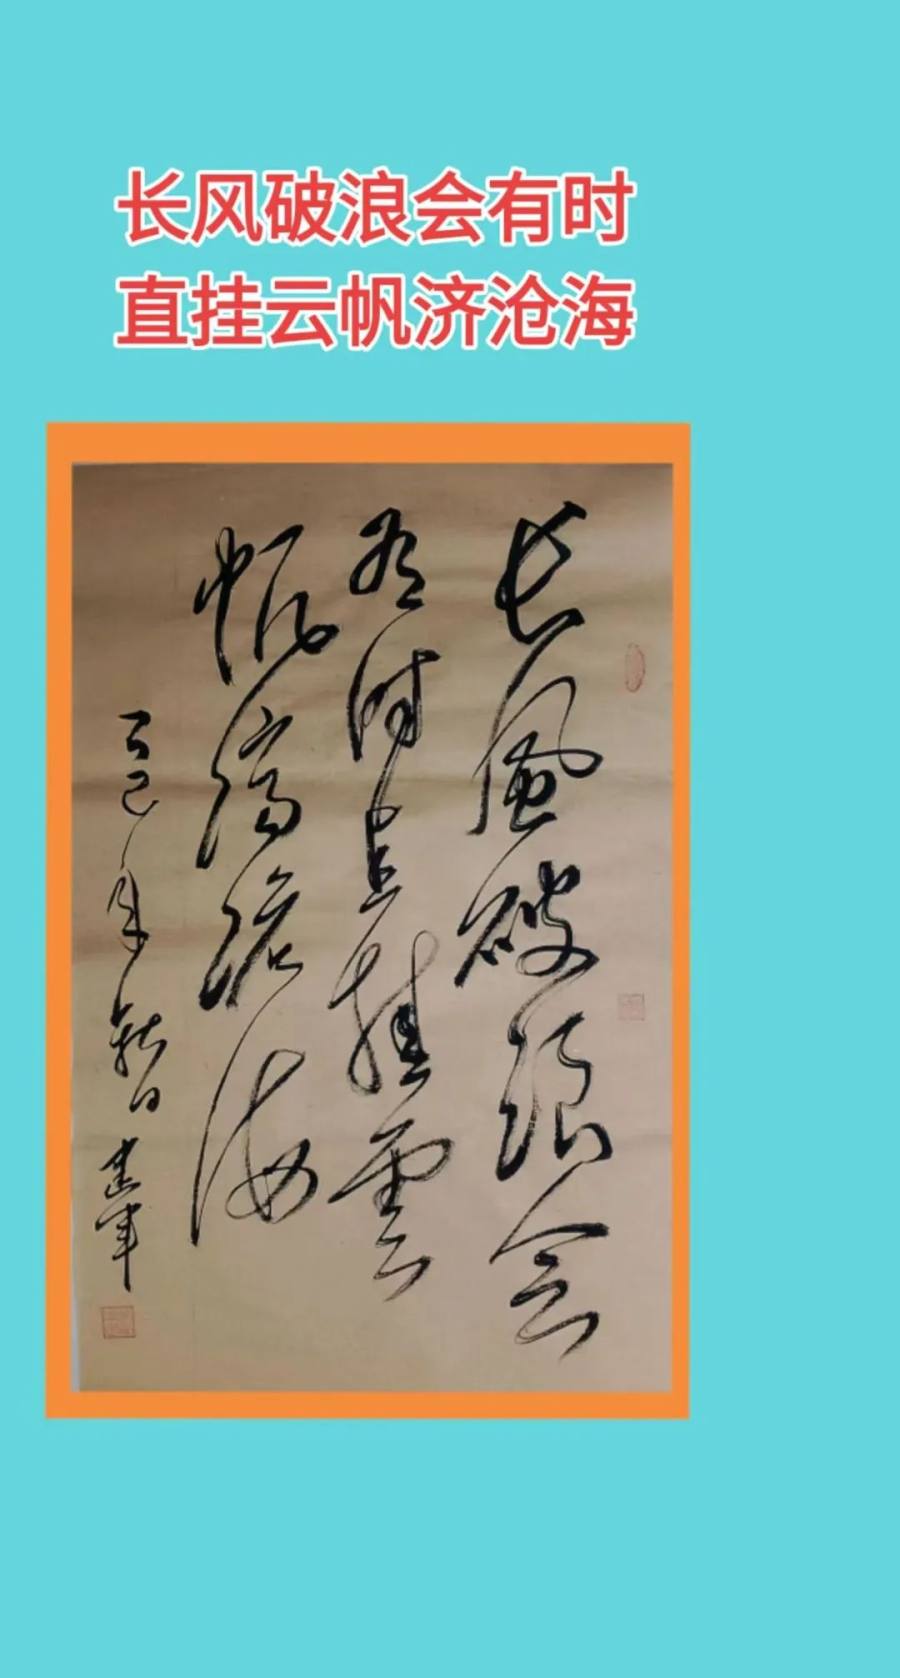 长风破浪会有时
直挂云帆济沧海
长风破浪会
有时直挂雲
帆济沧海
乙巳年秋日建军